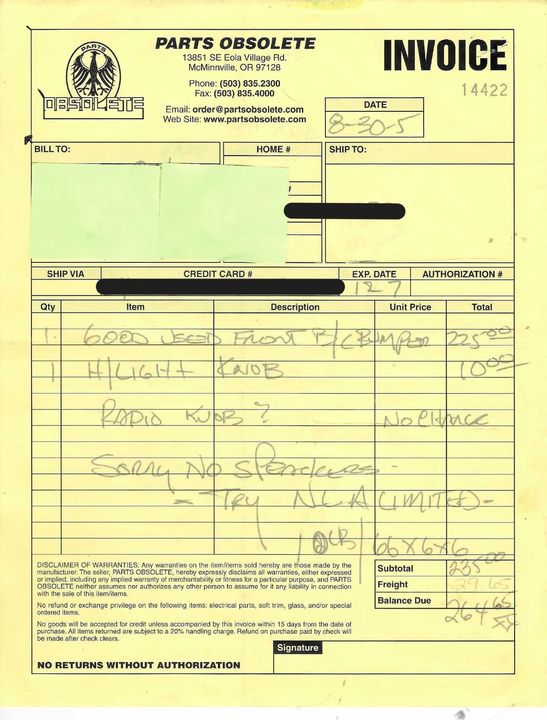 PARTS
OBSOLETE
PARTS OBSOLETE
13851 SE Eola Village Rd.
McMinnville, OR 97128
Phone: (503) 835.2300
Fax: (503) 835.4000
Email: order@partsobsolete.com
Web Site: www.partsobsolete.com
INVOICE
14422
DATE
8-30-5
BILL TO:
HOME #
SHIP TO:
SHIP VIA CREDIT CARD # EXP. DATE AUTHORIZATION #
12 7
Qty Item Description Unit Price Total
1. GOOD USED FRONT B/C BUMPER 225 00
1 H/LIGHT KNOB 10 00
RADIO KNOB? NO CHARGE
SORRY NO SPEACKERS -
= TRY NLA LIMITED -
66x6x6
DISCLAIMER OF WARRANTIES: Any warranties on the item/items sold hereby are those made by the
manufacturer. The seller, PARTS OBSOLETE, hereby expressly disclaims all warranties, either expressed
or implied, including any implied warranty of merchantability or fitness for a particular purpose, and PARTS
OBSOLETE neither assumes nor authorizes any other person to assume for it any liability in connection
with the sale of this item/items.
No refund or exchange privilege on the following items: electrical parts, soft trim, glass, and/or special
ordered items.
No goods will be accepted for credit unless accompanied by this invoice within 15 days from the date of
purchase. All items returned are subject to a 20% handling charge. Refund on purchase paid by check will
be made after check clears.
NO RETURNS WITHOUT AUTHORIZATION
Subtotal 235 00
Freight 29.65
Balance Due 264 65
Signature